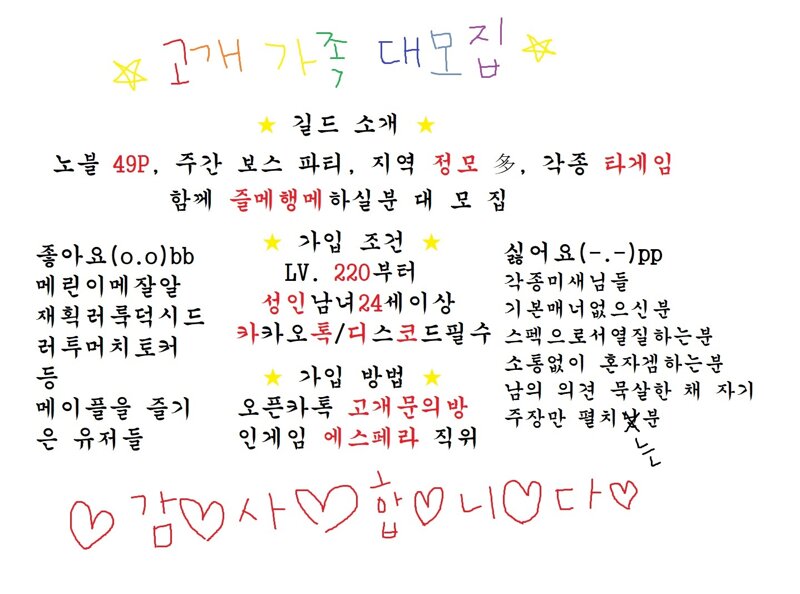 ☆ 고개 가족 대모집 ☆
★ 길드 소개 ★
노블 49P, 주간 보스 파티, 지역 정모 多, 각종 타게임
함께 즐메행메하실분 대 모 집
좋아요(o.o)bb
메린이메잘알
재획러룩덕시드
러투머치토커
등
메이플을 즐기
은 유저들
★ 가입 조건 ★
LV. 220부터
성인남녀24세이상
카카오톡/디스코드필수
★ 가입 방법 ★
오픈카톡 고개문의방
인게임 에스페라 직위
싫어요(-.-)pp
각종미새님들
기본매너없으신분
스펙으로서열질하는분
소통없이 혼자겜하는분
남의 의견 묵살한 채 자기
주장만 펼치는분
♡감♡사♡합♡니♡다♡